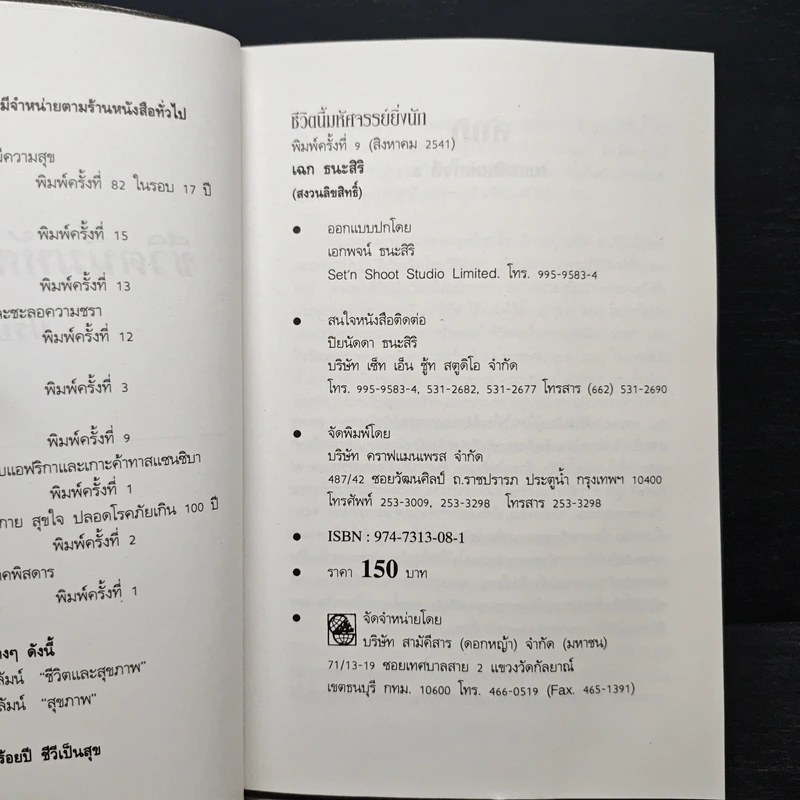 มีจำหน่ายตามร้านหนังสือทั่วไป
มีความสุข
พิมพ์ครั้งที่ 82 ในรอบ 17 ปี
พิมพ์ครั้งที่ 15
พิมพ์ครั้งที่ 13
ละชะลอความชรา
พิมพ์ครั้งที่ 12
พิมพ์ครั้งที่ 3
พิมพ์ครั้งที่ 9
บแอฟริกาและเกาะค้าทาสแซนซิบา
พิมพ์ครั้งที่ 1
กาย สุขใจ ปลอดโรคภัยเกิน 100 ปี
พิมพ์ครั้งที่ 2
คพิสดาร
พิมพ์ครั้งที่ 1
างๆ ดังนี้
ลัมน์ "ชีวิตและสุขภาพ"
ลัมน์ "สุขภาพ"
ร้อยปี ชีวีเป็นสุข
ชีวิตนี้มหัศจรรย์ยิ่งนัก
พิมพ์ครั้งที่ 9 (สิงหาคม 2541)
เฉก ธนะสิริ
(สงวนลิขสิทธิ์)
● ออกแบบปกโดย
เอกพจน์ ธนะสิริ
Set'n Shoot Studio Limited. โทร. 995-9583-4
● สนใจหนังสือติดต่อ
ปิยนัดดา ธนะสิริ
บริษัท เซ็ท เอ็น ชู้ท สตูดิโอ จำกัด
โทร. 995-9583-4, 531-2682, 531-2677 โทรสาร (662) 531-2690
● จัดพิมพ์โดย
บริษัท คราฟแมนเพรส จำกัด
487/42 ซอยวัฒนศิลป์ ถ.ราชปรารภ ประตูน้ำ กรุงเทพฯ 10400
โทรศัพท์ 253-3009, 253-3298 โทรสาร 253-3298
● ISBN : 974-7313-08-1
● ราคา 150 บาท
● จัดจำหน่ายโดย
บริษัท สามัคคีสาร (ดอกหญ้า) จำกัด (มหาชน)
71/13-19 ซอยเทศบาลสาย 2 แขวงวัดกัลยาณ์
เขตธนบุรี กทม. 10600 โทร. 466-0519 (Fax. 465-1391)